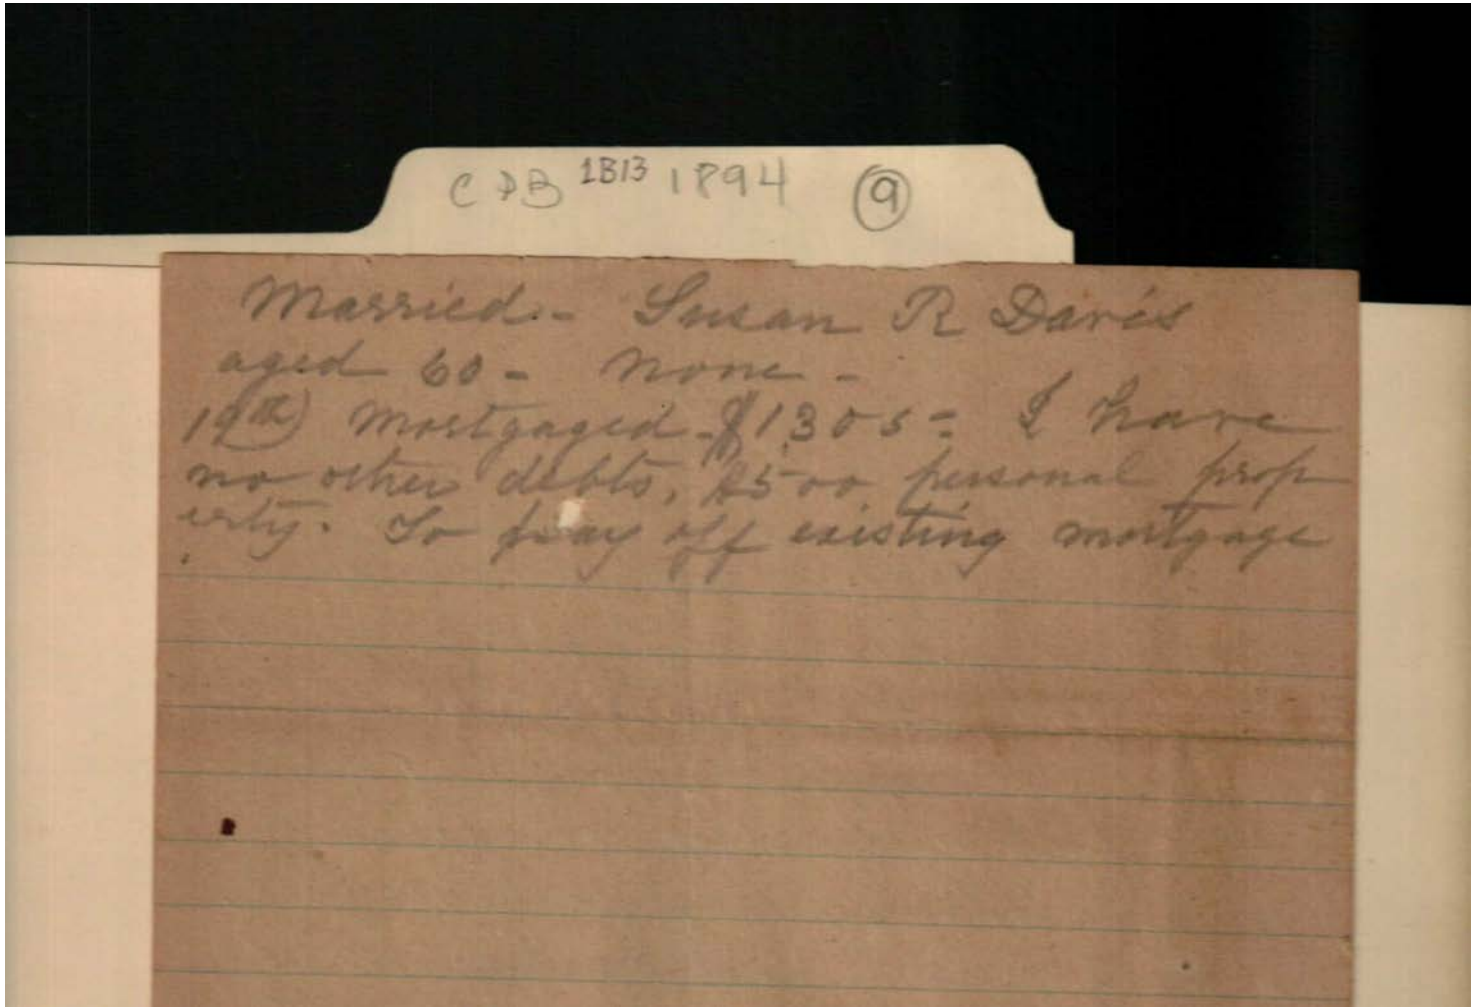 CDB 1B13 1894 9
Married - Susan R Davis
aged 60 - None -
19th) Mortgaged - $1,305 = I have
no other debts, $500 personal prop
erty. To pay off existing mortgage